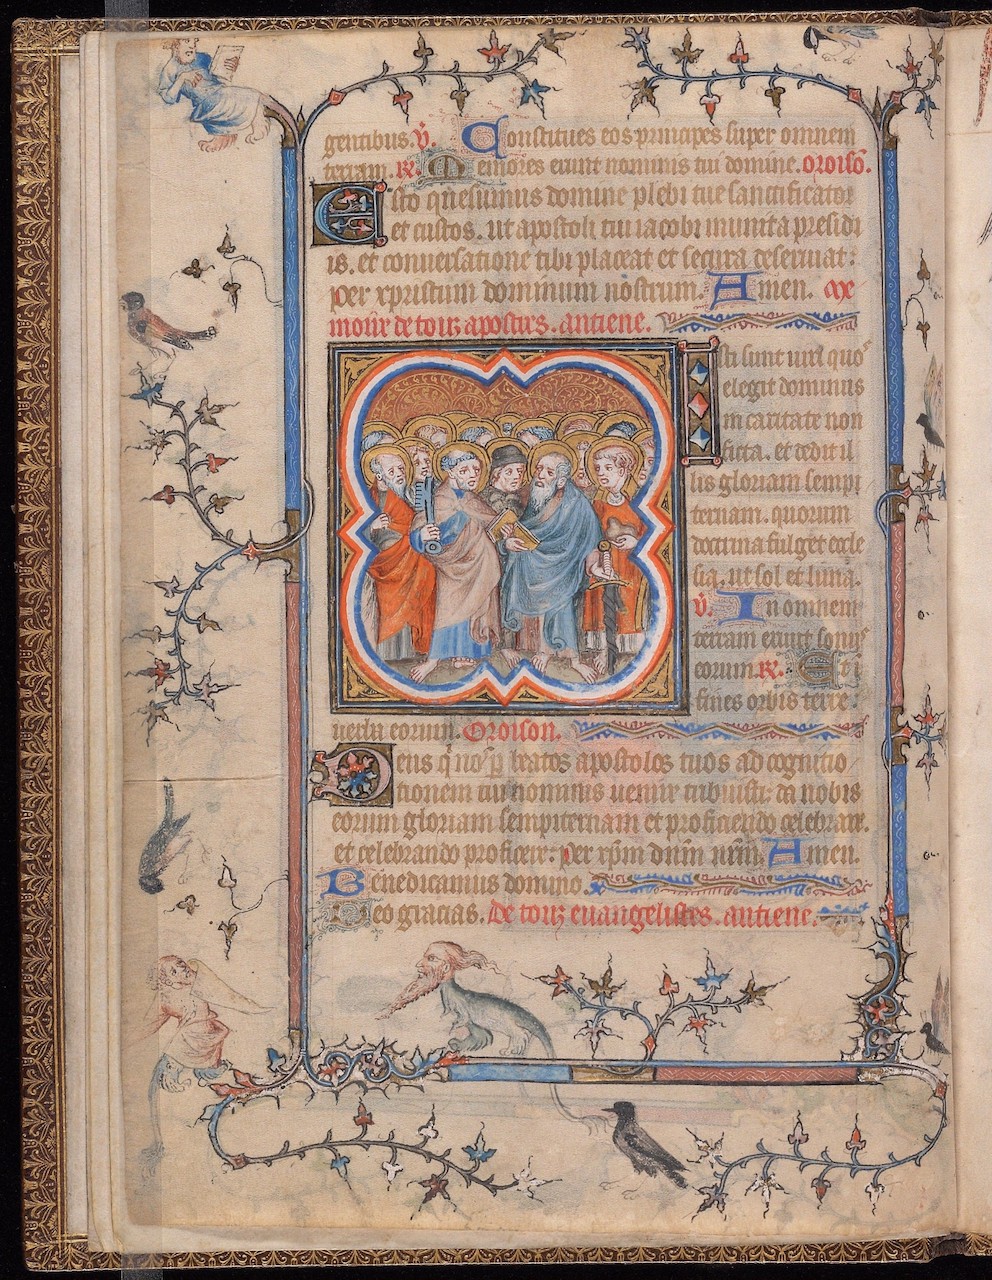 gentibus. v̄. Constitues eos principes super omnem
terram. R. Memores erunt nominis tui domine. oroisō.
Esto quesumus domine plebi tue sanctificator
et custos. ut apostoli tui iacobi munita presidi
is. et conuersatione tibi placeat et secura deseruiat:
per xpristum dominum nostrum. Amen.
de touz apostres. antiene.
Isti sunt uiri quoˢ
elegit dominus
in caritate non
ficta. et dedit il
lis gloriam sempi
ternam. quorum
doctrina fulget eccle
sia. ut sol et luna.
v̄. In omnem
terram exiuit sonuˢ
eorum. R. Et i
fines orbis terre.
uerba eorum. Oroison.
Deus q̇ noˢ p̄ beatos apostolos tuos ad cognitio
tionem tui nominis uenire tribuisti: da nobis
eorum gloriam sempiternam et proficiendo celebrare.
et celebrando proficere: per xp̄m dn̄m nr̄m. Amen.
Benedicamus domino.
Deo gracias. De touz euangelistes. antiene.